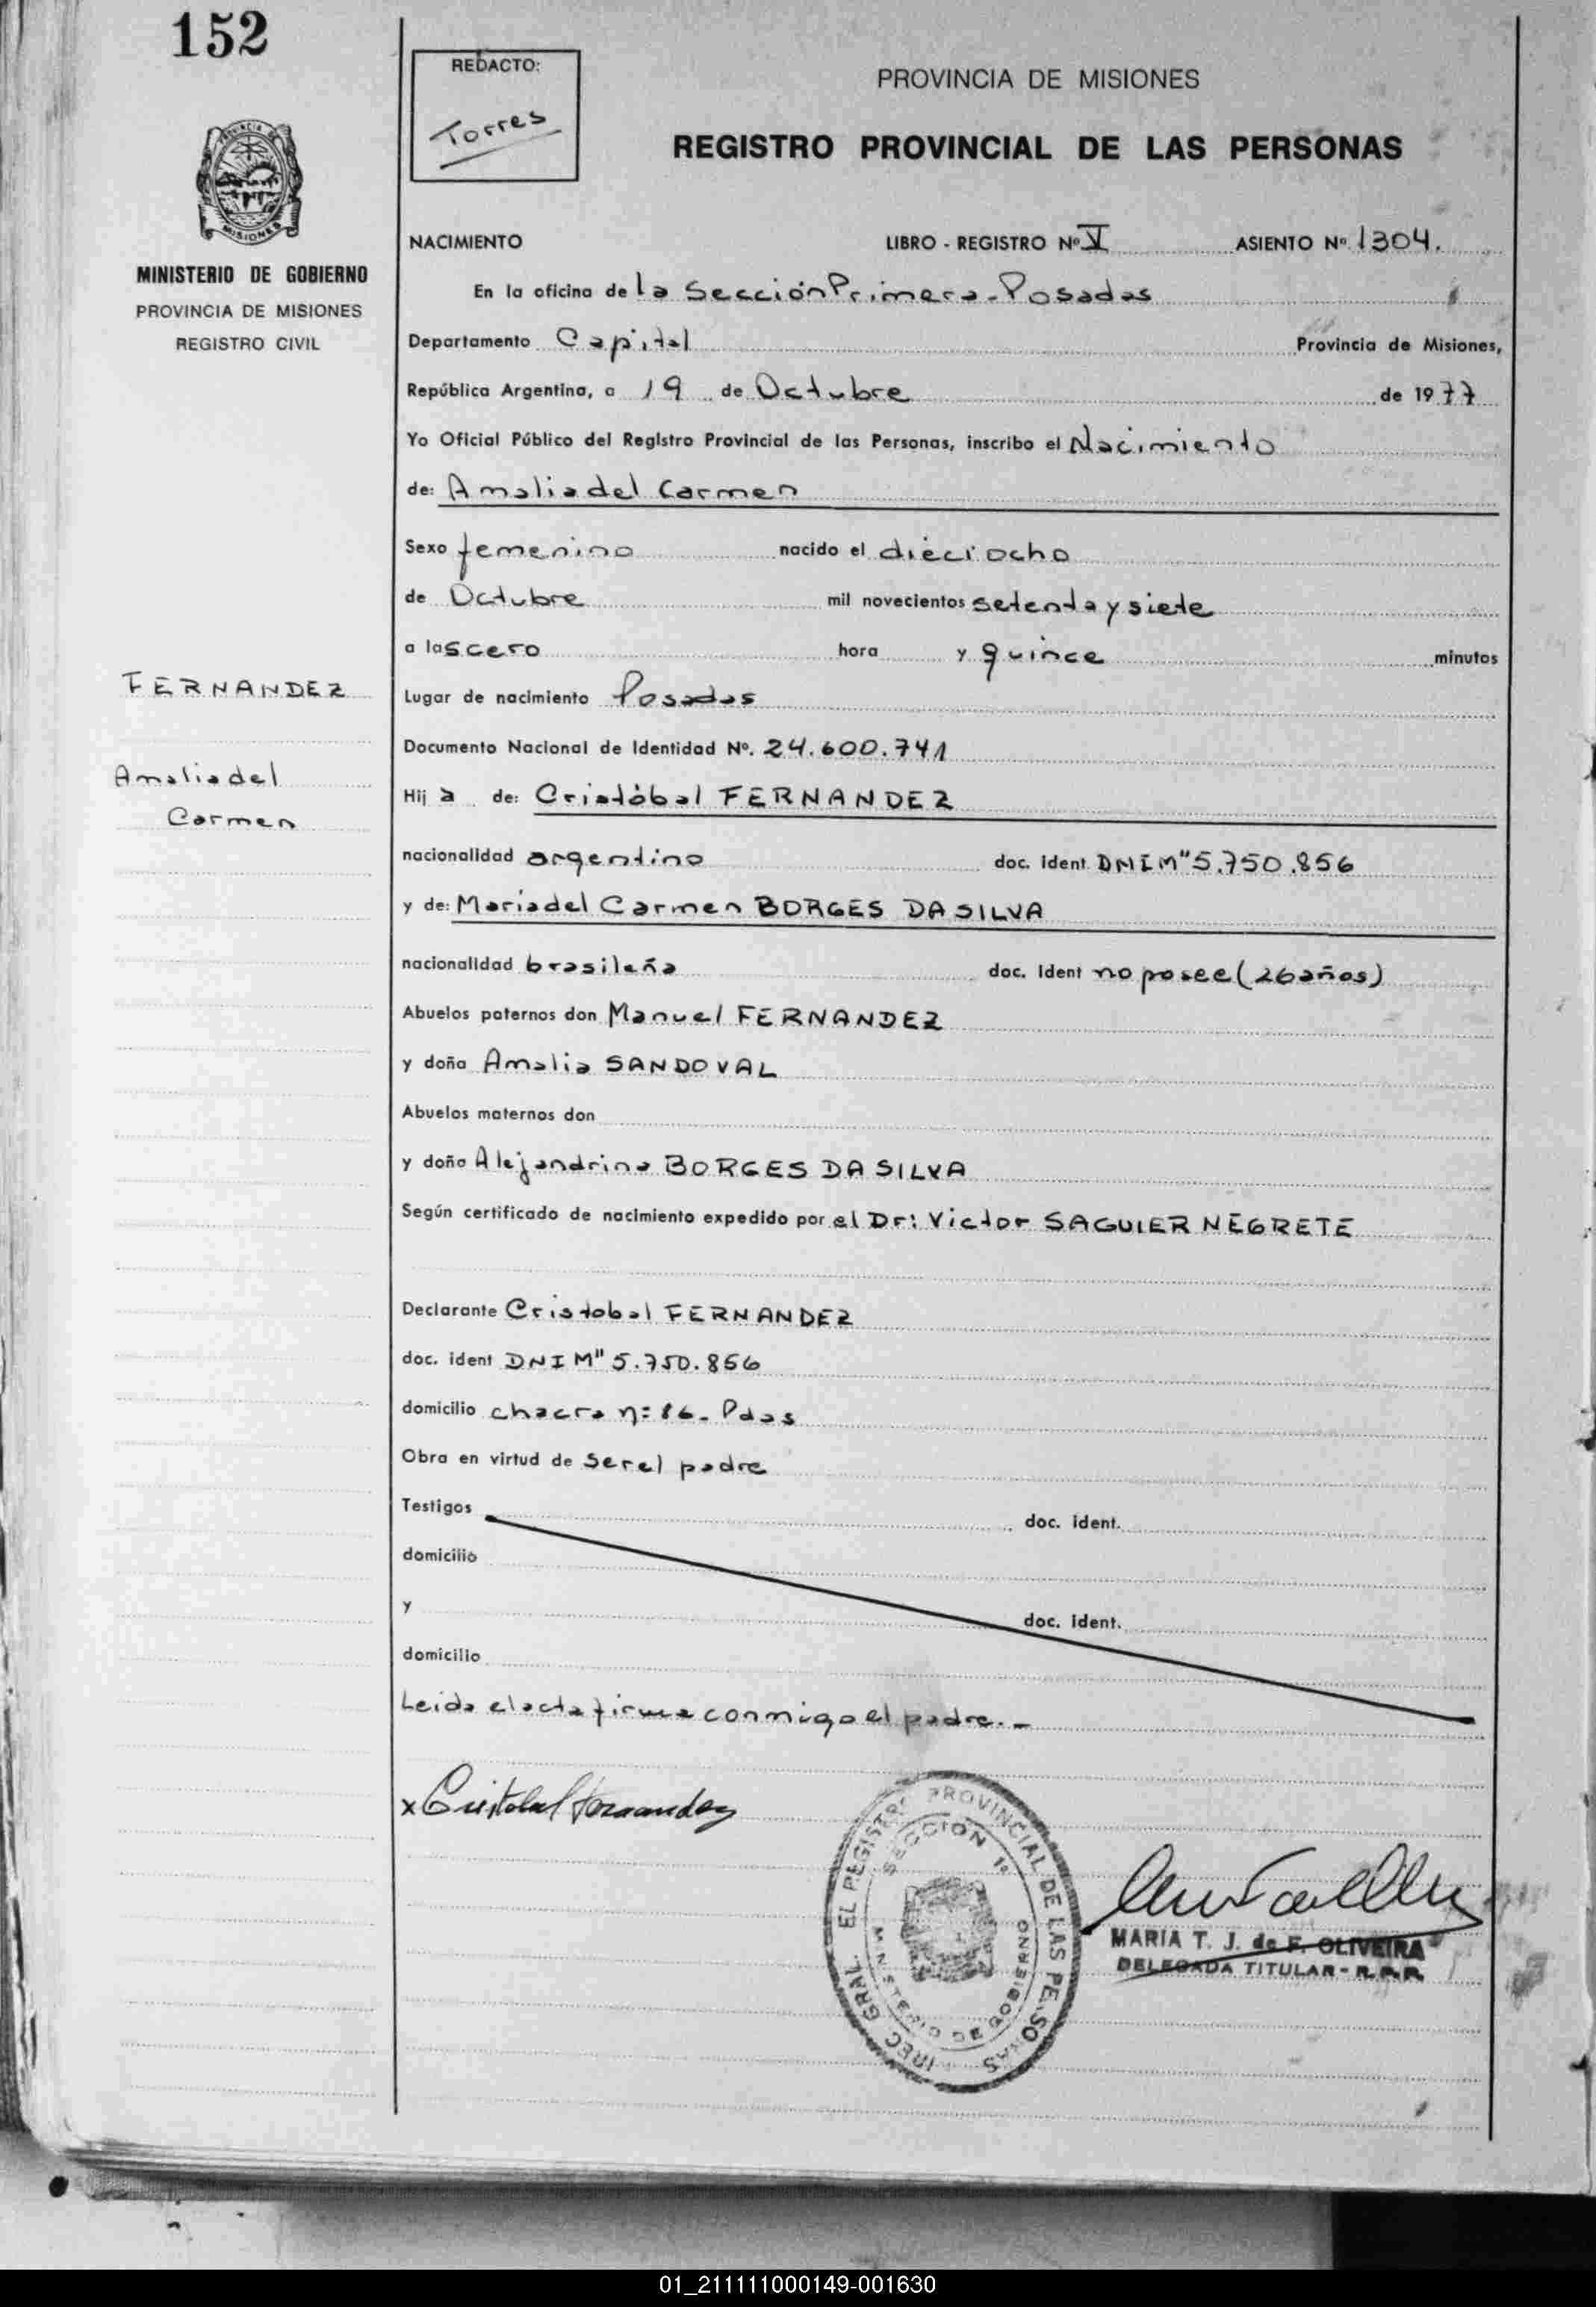 152
REDACTO:
Torres
PROVINCIA DE MISIONES
REGISTRO PROVINCIAL DE LAS PERSONAS
MISIONES
MINISTERIO DE GOBIERNO
PROVINCIA DE MISIONES
REGISTRO CIVIL
NACIMIENTO LIBRO - REGISTRO Nº V ASIENTO Nº 1304.
En la oficina de la Sección Primera - Posadas
Departamento Capital Provincia de Misiones,
República Argentina, a 19 de Octubre de 1977
Yo Oficial Público del Registro Provincial de las Personas, inscribo el Nacimiento
de: Amalia del Carmen
Sexo femenino nacido el dieciocho
de Octubre mil novecientos setenta y siete
a las cero hora y quince minutos
FERNANDEZ
Amalia del
Carmen
Lugar de nacimiento Posadas
Documento Nacional de Identidad Nº. 24.600.741
Hij a de: Cristóbal FERNANDEZ
nacionalidad argentino doc. ident. DNI M" 5.750.856
y de: Maria del Carmen BORGES DA SILVA
nacionalidad brasileña doc. ident no posee (26 años)
Abuelos paternos don Manuel FERNANDEZ
y doña Amalia SANDOVAL
Abuelos maternos don
y doña Alejandrina BORGES DA SILVA
Según certificado de nacimiento expedido por el Dr: Victor SAGUIER NEGRETE
Declarante Cristobal FERNANDEZ
doc. ident DNI M" 5.750.856
domicilio chacra n= 86 - Pdas
Obra en virtud de ser el padre
Testigos doc. ident.
domicilio
y doc. ident.
domicilio
Leida el acta firma conmigo el padre. -
x Cristobal Fernandez
EL REGISTRO PROVINCIAL DE LAS PERSONAS
SECCION 1ª
MINISTERIO DE GOBIERNO
GRAL.
MARIA T. J. de F. OLIVEIRA
DELEGADA TITULAR - R.P.P.
01_211111000149-001630